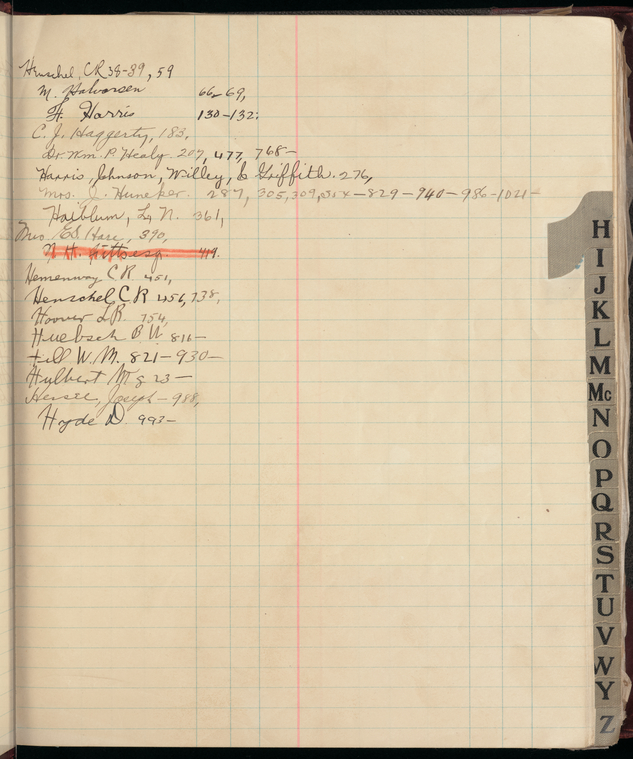 Henschel, CR 38-39, 59
M. Halvorsen 66-69,
F. Harris 130-132;
C. J. Haggerty, 183,
Dr. Wm. P. Healy 207, 477, 768-
Harris, Johnson, Willey, & Griffith. 276,
Mrs. J. Huneker. 287, 305, 309, -829-940-986-1021-
Haiblum, L. N. 361,
Mrs Ed Hare, 390,
419.
Hemenway C R 451,
Henschel C R 456, 738,
Hoover L R. 754,
Huebsch B W 816-
Hill W. M. 821-930-
Hulbert M g 23-
Joseph-988,
Hyde D. 993-
H
I
J
K
L
M
Mc
N
O
P
Q
R
S
T
U
V
W
Y
Z